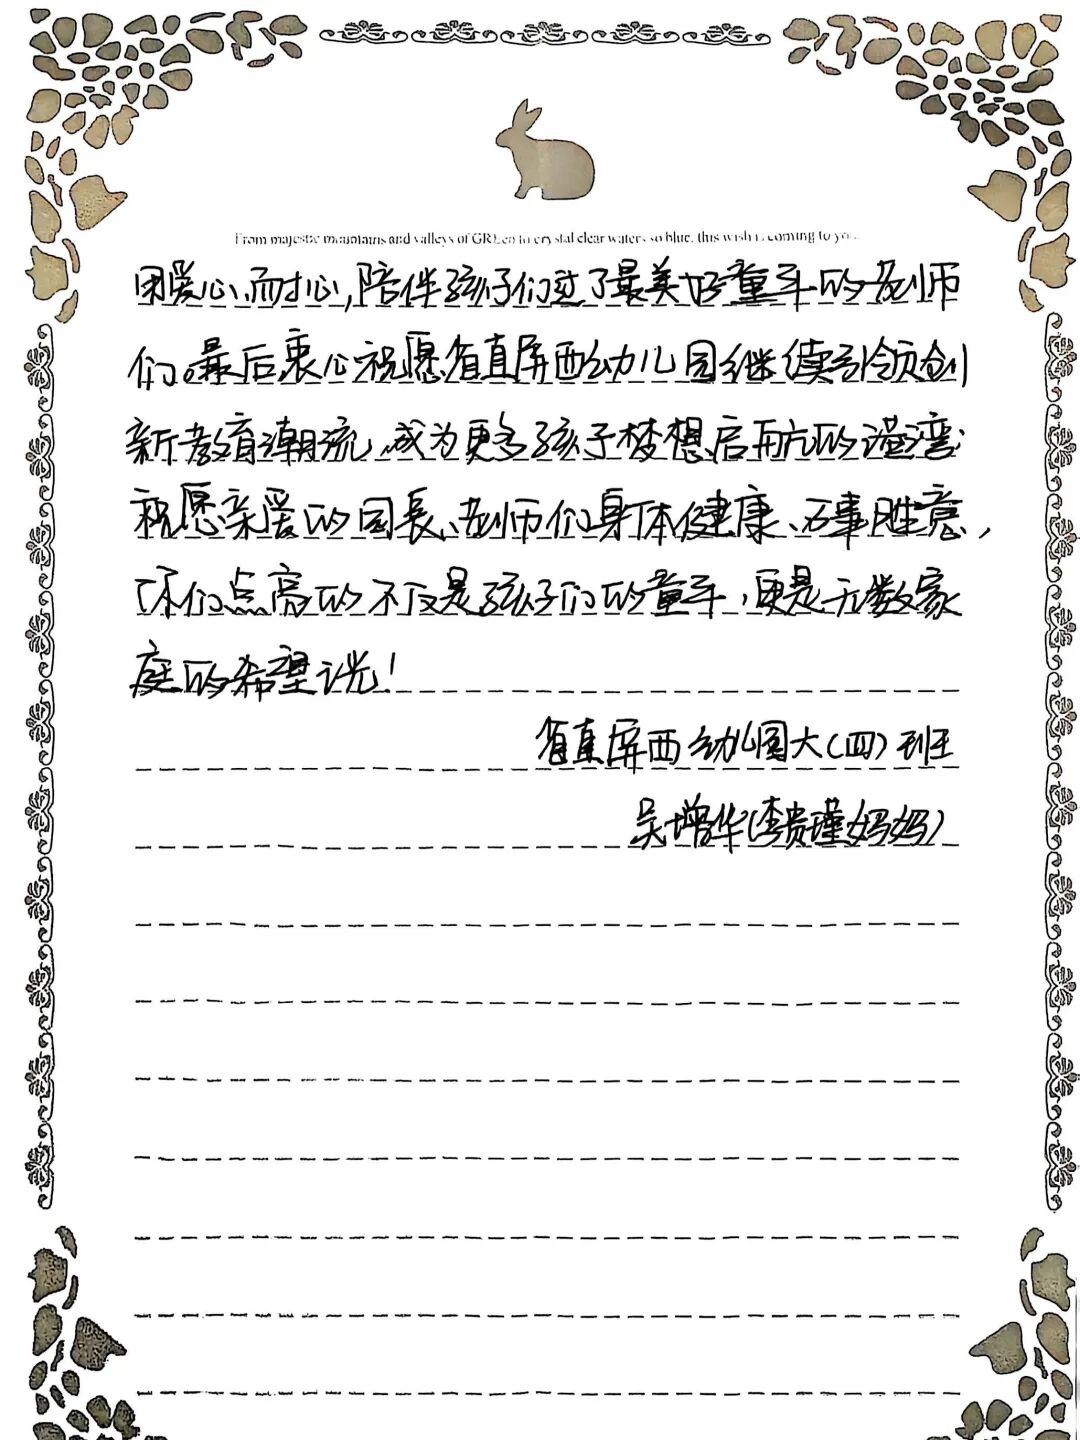 From majestic mountains and valleys of GREen to crystal clear waters so blue, this wish is coming to you.
用爱心、耐心,陪伴孩子们过了最美好童年的老师
们。最后衷心祝愿省直屏西幼儿园继续引领创
新教育潮流,成为更多孩子梦想启航的港湾;
祝愿亲爱的园長、老师们身体健康、万事胜意,
你们点亮的不仅是孩子们的童年,更是无数家
庭的希望之光!
省直屏西幼儿园大(四)班
吴增华(李贵瑾妈妈)